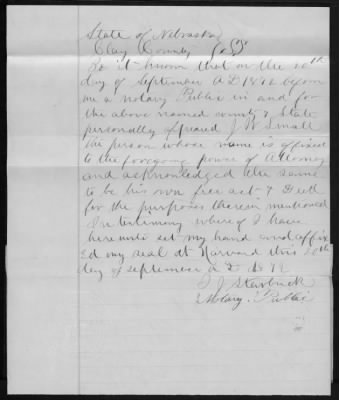 State of Nebraska
Clay County } SS
Be it known that on the 20th
day of September A D 1872 before
me a notary Public in and for
the above named county & State
personally apeared J W Small
the person whose name is affixed
to the foregoing power of Attorney
and acknowledged the same
to be his own free act & Deed
for the purposes therein mentioned
In testimony where of I have
here unto set my hand and affix
Ed my seal at Harvard this 20th
day of September A D 1872
J Starbuck
Notary Public